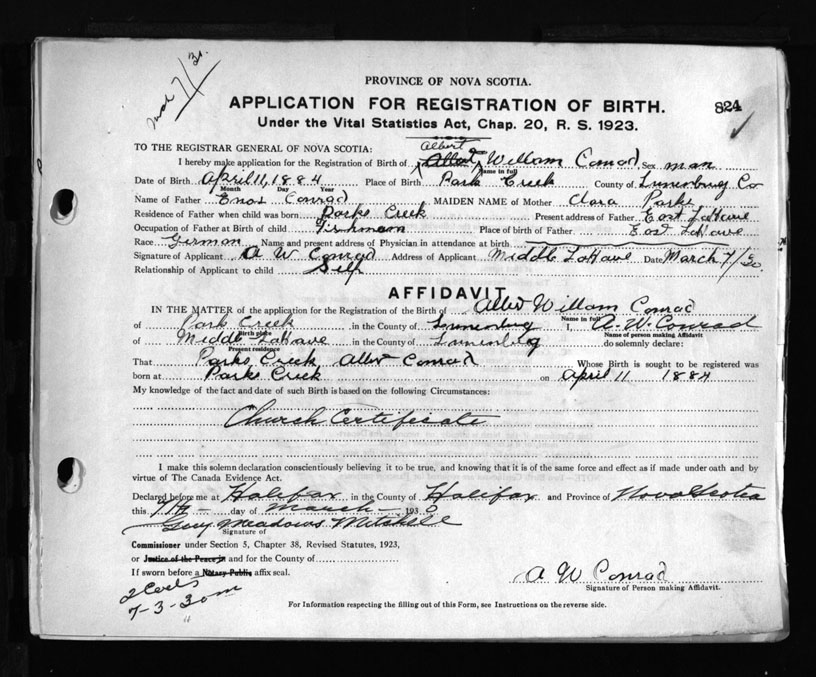 7/30.
PROVINCE OF NOVA SCOTIA.
APPLICATION FOR REGISTRATION OF BIRTH. 824
Under the Vital Statistics Act, Chap. 20, R. S. 1923.
TO THE REGISTRAR GENERAL OF NOVA SCOTIA: Albert
I hereby make application for the Registration of Birth of William Conrad Sex man
Name in full
Date of Birth April 11, 1884 Place of Birth Park Creek County of Lunenburg Co
Month Day Year
Name of Father Enos Conrad MAIDEN NAME of Mother Clara Parks
Residence of Father when child was born Parks Creek Present address of Father East LaHave
Occupation of Father at Birth of child Fishman Place of birth of Father East LaHave
Race German Name and present address of Physician in attendance at birth
Signature of Applicant A W Conrad Address of Applicant Middle LaHave Date March 7/30.
Relationship of Applicant to child Self
AFFIDAVIT.
IN THE MATTER of the application for the Registration of the Birth of William Conrad
Name in full
of Park Creek in the County of Lunenburg I, A. W. Conrad
Birth place Name of person making Affidavit
of Middle LaHave in the County of Lunenburg do solemnly declare:
Present residence
That Parks Creek Conrad Whose Birth is sought to be registered was
born at Parks Creek on April 11 1884
My knowledge of the fact and date of such Birth is based on the following Circumstances:
Church Certificate
I make this solemn declaration conscientiously believing it to be true, and knowing that it is of the same force and effect as if made under oath and by
virtue of The Canada Evidence Act.
Declared before me at Halifax in the County of Halifax and Province of Nova Scotia
this 7th day of March 1930
Guy Meadows Mitchell
Signature of
Commissioner under Section 5, Chapter 38, Revised Statutes, 1923,
or Justice of the Peace in and for the County of
If sworn before a Notary Public affix seal.
A W Conrad
Signature of Person making Affidavit.
7-3-30
For Information respecting the filling out of this Form, see Instructions on the reverse side.